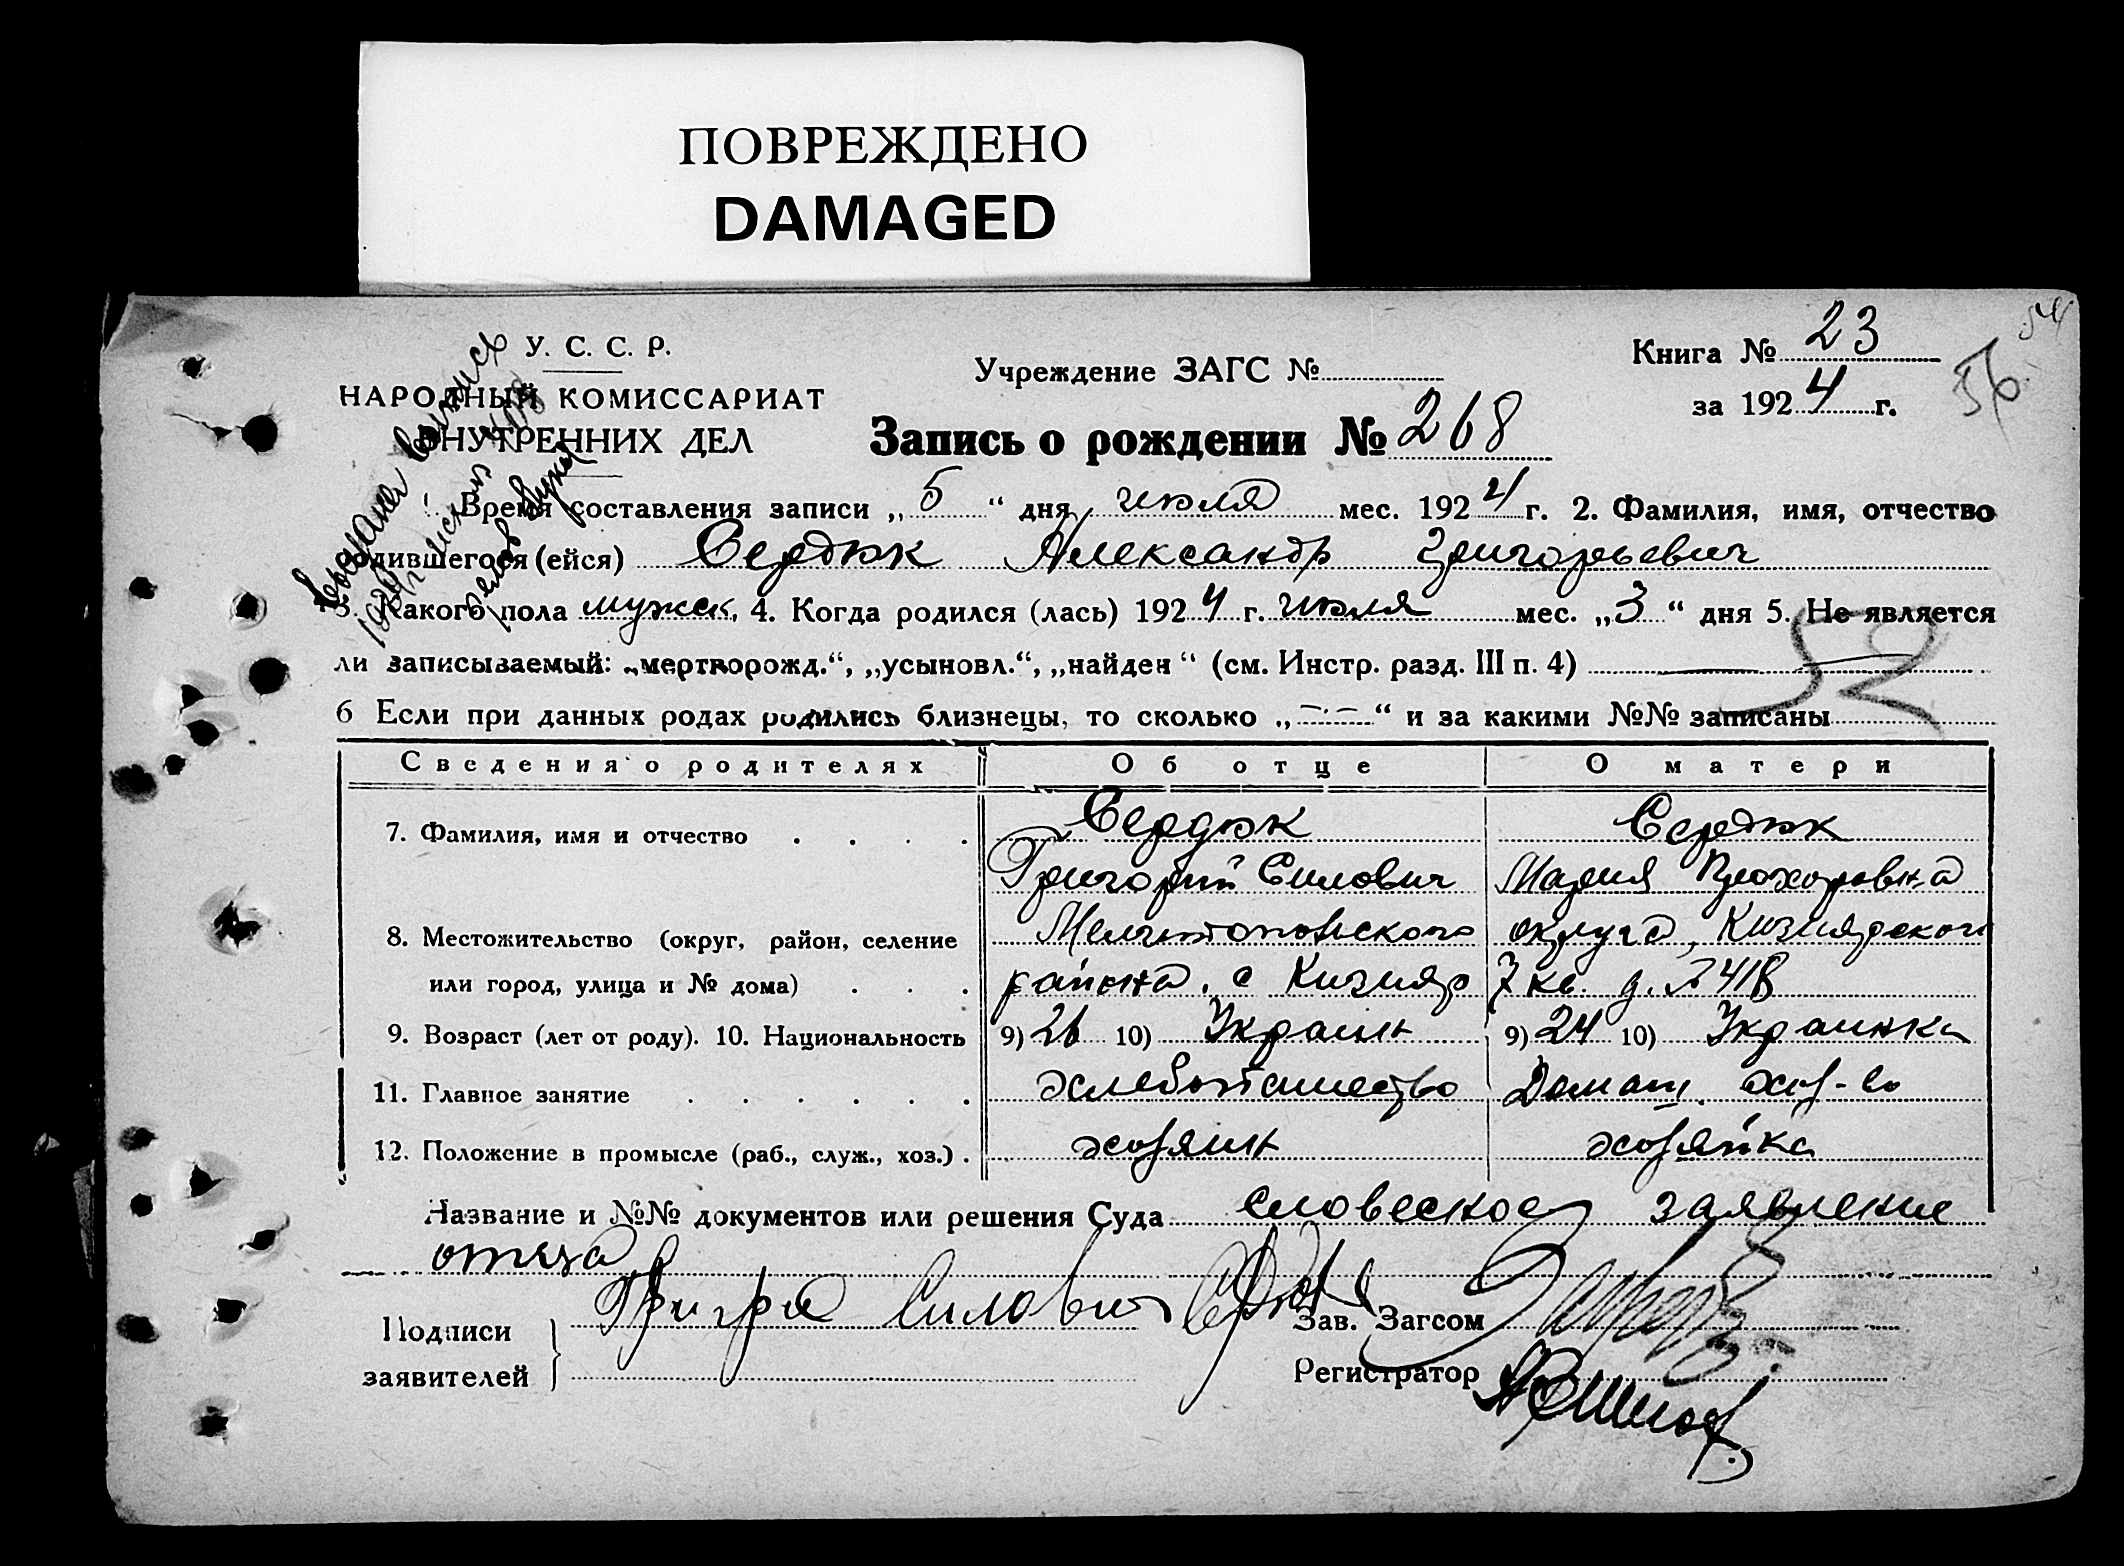 ПОВРЕЖДЕНО
DAMAGED
54
У. С. С. Р.
НАРОДНЫЙ КОМИССАРИАТ
ВНУТРЕННИХ ДЕЛ
Учреждение ЗАГС №
Книга № 23
за 1924 г.
56
Запись о рождении № 268
Время составления записи „5“ дня июля мес. 1924 г. 2. Фамилия, имя, отчество
дившегося (ейся) Сердюк Александр Григорьевич
3. Какого пола мужск. 4. Когда родился (лась) 1924 г. июля мес. „3“ дня 5. Не является
ли записываемый: „мертворожд.“, „усыновл.“, „найден“ (см. Инстр. разд. III п. 4) —
52
6 Если при данных родах родились близнецы, то сколько „—“ и за какими №№ записаны
Сведения о родителях Об отце О матери
7. Фамилия, имя и отчество . . . . Сердюк Сердюк
Григорий Силович Мария Прохоровна
8. Местожительство (округ, район, селение Мелитопольского округа, Кизиярского
или город, улица и № дома) . . . района, с Кизияр 7 кв. д. № 418
9. Возраст (лет от роду). 10. Национальность 9) 26 10) Украин 9) 24 10) Украинка
11. Главное занятие . . . . . . хлебопашество Домаш. хоз-во
12. Положение в промысле (раб., служ., хоз.) . хозяин хозяйка
Название и №№ документов или решения Суда словеское заявление
отца
Подписи
заявителей
Григра Силович
Зав. Загсом
Регистратор